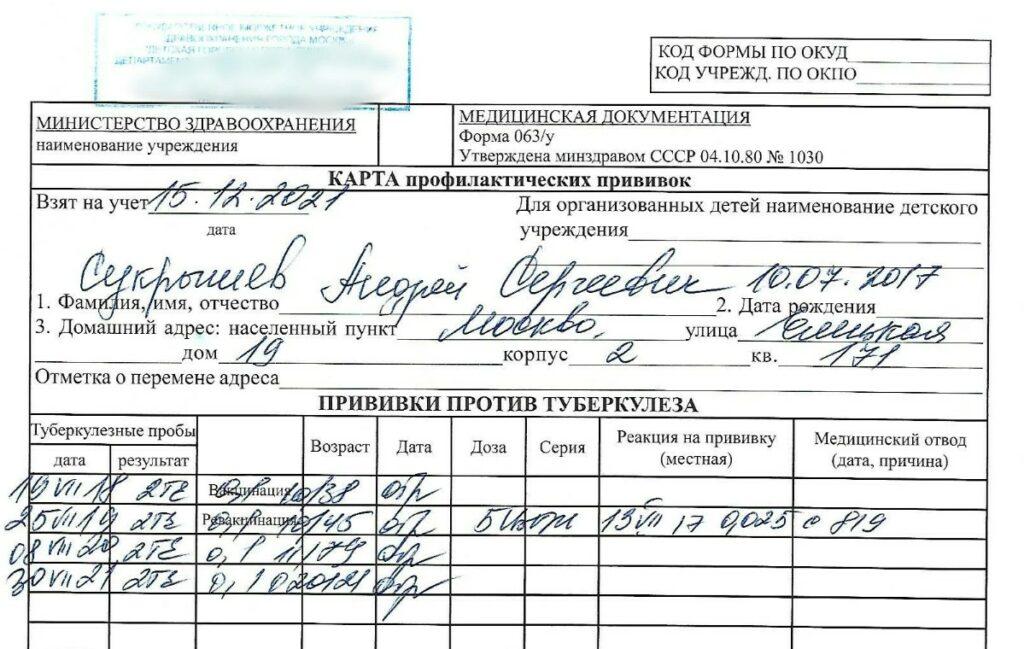 ГОСУДАРСТВЕННОЕ БЮДЖЕТНОЕ УЧРЕЖДЕНИЕ
ЗДРАВООХРАНЕНИЯ ГОРОДА МОСКВЫ
ДЕТСКАЯ
ДЕПАРТАМЕН
КОД ФОРМЫ ПО ОКУД
КОД УЧРЕЖД. ПО ОКПО
МИНИСТЕРСТВО ЗДРАВООХРАНЕНИЯ
наименование учреждения
МЕДИЦИНСКАЯ ДОКУМЕНТАЦИЯ
Форма 063/у
Утверждена минздравом СССР 04.10.80 № 1030
КАРТА профилактических прививок
Взят на учет 15.12.2021
дата
Для организованных детей наименование детского
учреждения
Сукрышев Андрей Сергеевич 10.07.2017
1. Фамилия, имя, отчество 2. Дата рождения
3. Домашний адрес: населенный пункт Москва, улица Елецкая
дом 19 корпус 2 кв. 171
Отметка о перемене адреса
ПРИВИВКИ ПРОТИВ ТУБЕРКУЛЕЗА
Туберкулезные пробы Возраст Дата Доза Серия Реакция на прививку (местная) Медицинский отвод (дата, причина)
дата результат
19 VII 18 2ТЕ Вакцинация отр
25 VII 19 2ТЕ Ревакцинация отр 13 VII 17 0,025 с 819
08 VII 20 2ТЕ отр
30 VII 21 2ТЕ отр